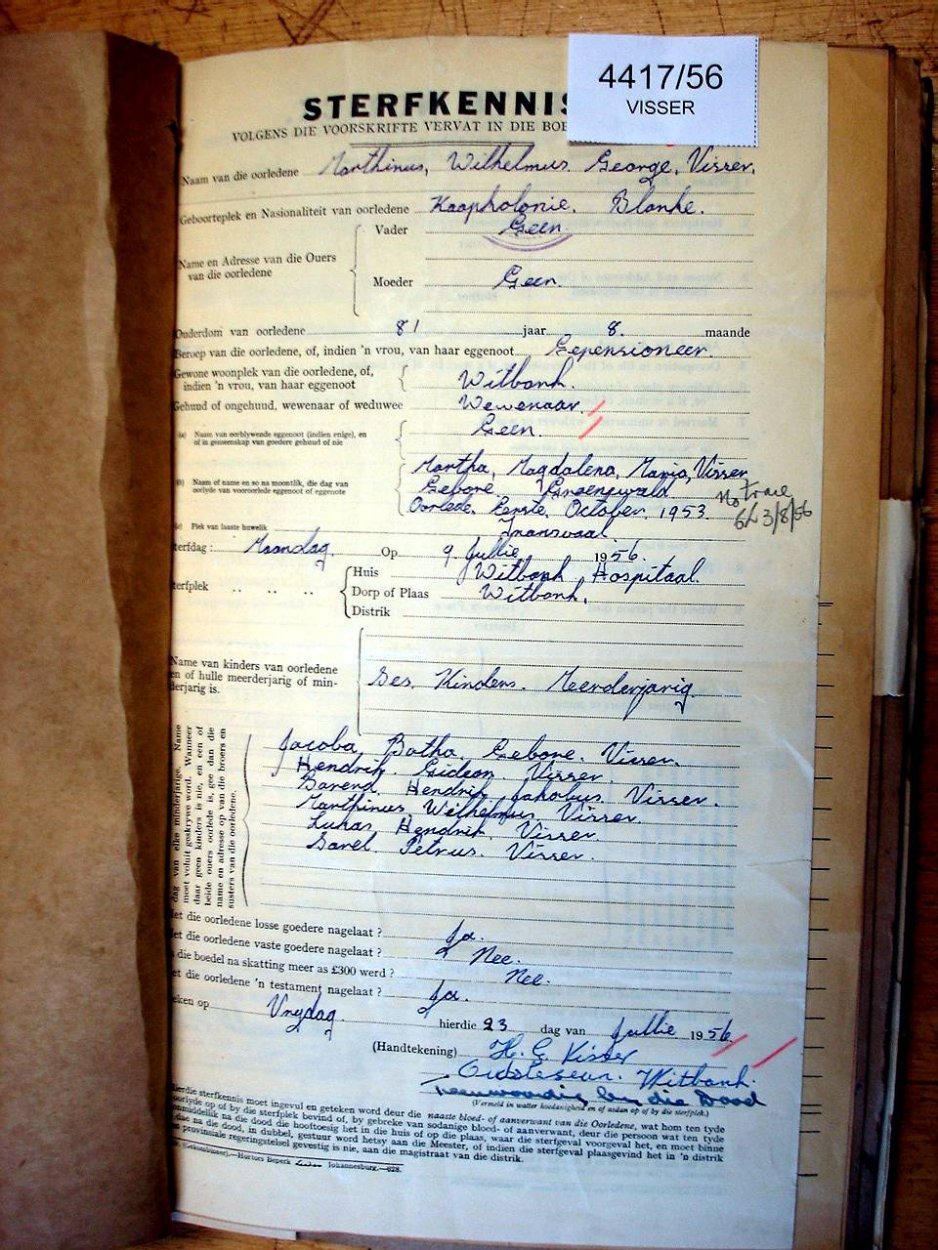 4417/56
VISSER
STERFKENNIS
VOLGENS DIE VOORSKRIFTE VERVAT IN DIE BOE
Naam van die oorledene Marthinus, Wilhelmus. George. Visser.
Geboorteplek en Nasionaliteit van oorledene Kaapkolonie. Blanke.
Name en Adresse van die Ouers van die oorledene
Vader Geen
Moeder Geen.
Ouderdom van oorledene 81 jaar 8. maande
Beroep van die oorledene, of, indien 'n vrou, van haar eggenoot Gepensioneer.
Gewone woonplek van die oorledene, of, indien 'n vrou, van haar eggenoot Witbank.
Gehud of ongehuud, wewenaar of weduwee Wewenaar.
(a) Naam van oorblywende eggenoot (indien enige), en of in gemeenskap van goedere gehuud of nie Geen.
(b) Naam of name en so na moontlik, die dag van oorlyde van vooroorlede eggenoot of eggenote
Martha, Magdalena, Maria, Visser
Gebore Groenewald
Oorlede. Eerste. October. 1953.
No trace
3/8/56
(c) Plek van laaste huwelik Transvaal
terfdag : Maandag. Op 9 Jullie 1956.
terfplek .. .. ..
Huis Witbank Hospitaal.
Dorp of Plaas Witbank.
Distrik
Name van kinders van oorledene en of hulle meerderjarig of minderjarig is.
Ses. Kinders. Meerderjarig.
dag van elke minderjarige. Name
moet voluit geskrywe word. Wanneer
daar geen kinders is nie, en een of
beide ouers oorlede is, gee dan die
name en adresse op van die broers en
susters van die oorledene.
Jacoba, Botha Gebore. Visser.
Hendrik. Gideon. Visser.
Barend. Hendrik. Jakobus. Visser.
Marthinus Wilhelmus. Visser.
Lukas, Hendrik. Visser.
Sarel Petrus. Visser.
et die oorledene losse goedere nagelaat ? Ja.
et die oorledene vaste goedere nagelaat ? Nee.
s die boedel na skatting meer as £300 werd ? Nee.
et die oorledene 'n testament nagelaat ? Ja.
eken op Vrydag. hierdie 23 dag van Jullie 1956
(Handtekening) H. G. Visser
Oudste seun. Witbank.
teenwoordig by die Dood
(Vermeld in watter hoedanigheid en of aldan op of by die sterfplek.)
Hierdie sterfkennis moet ingevul en geteken word deur die naaste bloed- of aanverwant van die Oorledene, wat hom ten tyde
oorlyde op of by die sterfplek bevind of, by gebreke van sodanige bloed- of aanverwant, deur die persoon wat ten tyde
onmiddellik na die dood die hooftoesig het in die huis of op die plaas, waar die sterfgeval voorgeval het, en moet binne
dae na die dood, in dubbel, gestuur word hetsy aan die Meester, of indien die sterfgeval plaasgevind het in 'n distrik
provinsiale regeringstelsel gevestig is nie, aan die magistraat van die distrik.
Hortors Beperk Johannesburg.—628.